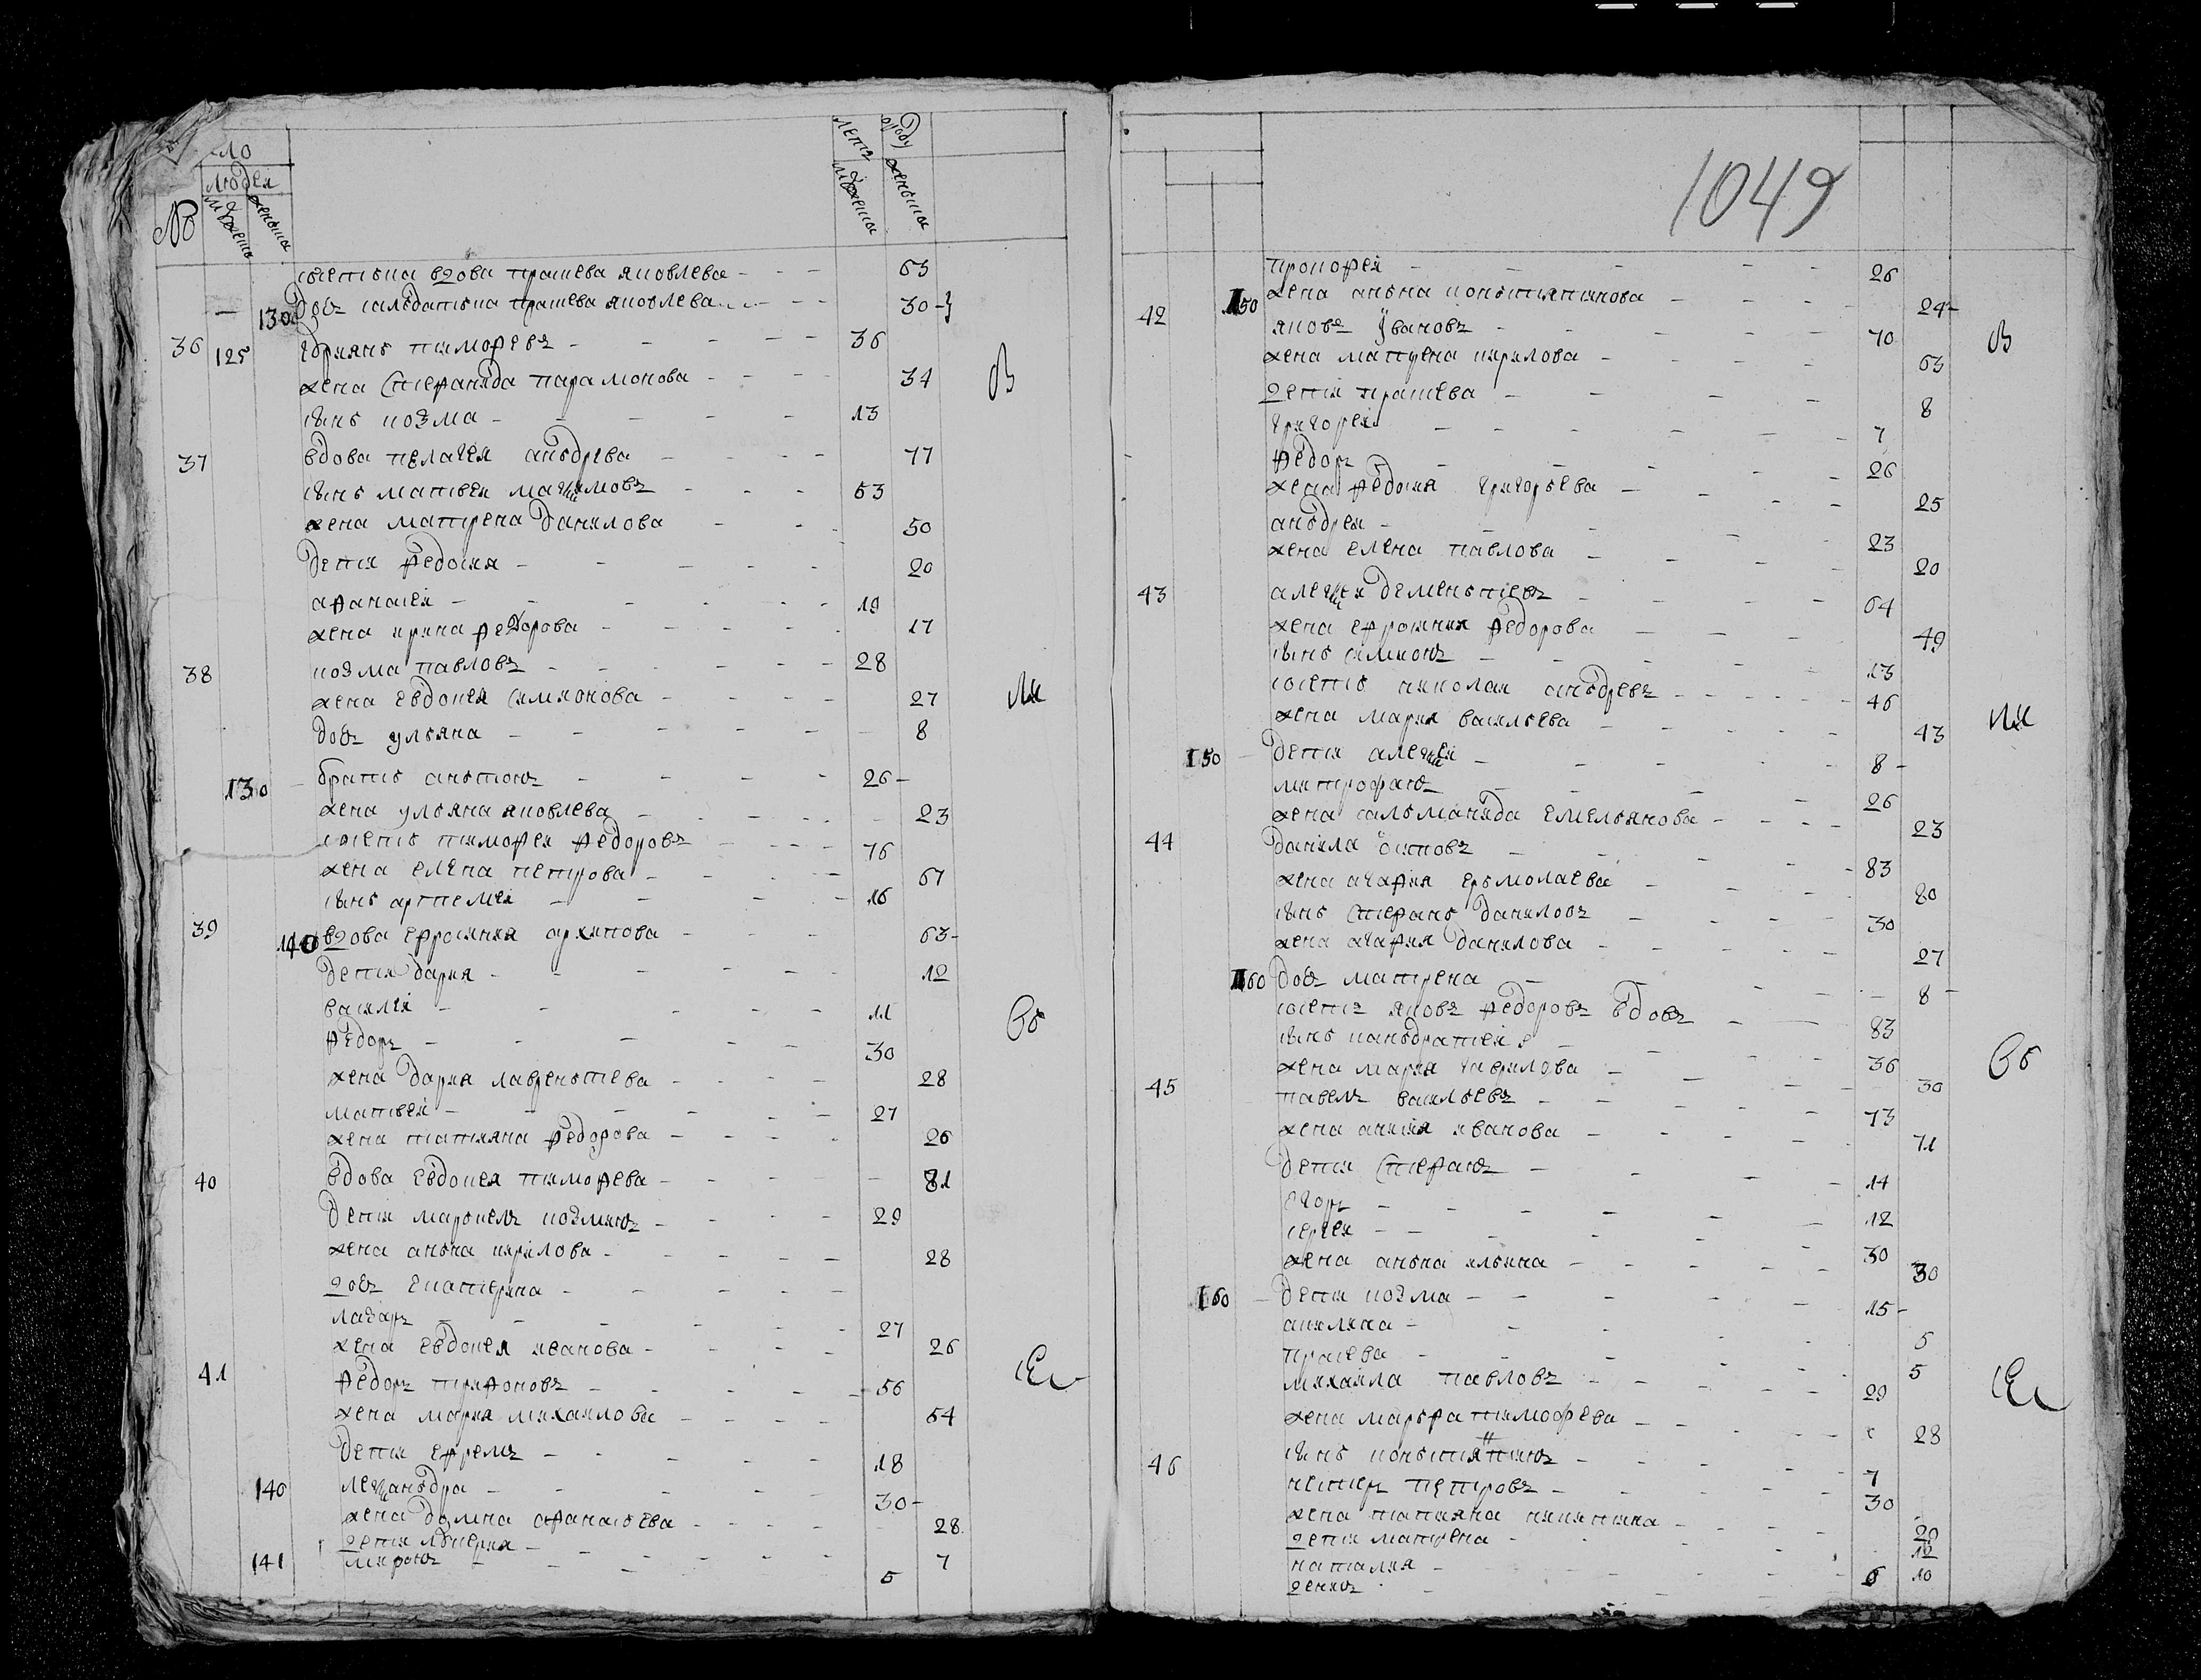 ло
людей
№ мужеска женска
лета мужеска
от роду женска
соседка вдова прасковя яковлева - - - 63
130 дочь салдатка прасковя яковлева - - - 30 -
36 125 ефим тимофеевъ - - - 36
жена степанида парамонова - - - 34
сынъ козма - - - 13
37 вдова пелагея аньдреева - - - 77
сынъ матвей максимовъ - - - 53
жена матрена данилова - - 50
дети федосия - - - 20
афанасей - - - 19
жена ирина федорова - - - 17
38 козма павловъ - - - 28
жена евдокея симионова - - - 27
дочь ульяна - - - 8
130 братъ аньтонъ - - - 26 -
жена ульяна яковлева - - - 23
соседъ тимофей федоровъ - - - 76
жена елена петрова - - - 67
сынъ артемей - - - 16
39 140 вдова ефросиния архипова - - - 63 -
дети дария - - - 12
василей - - - 11
федоръ - - - 30
жена дария лаврентьева - - - 28
матвей - - - 27
жена татияна федорова - - - 26
40 вдова евдокея тимофеева - - - 81
дети маркелъ козминъ - - - 29
жена аньна кирилова - - - 28
дочь екатерина - - -
лазаръ - - - 27
жена евдокея иванова - - - 26
41 федоръ трифоновъ - - - 56
жена мария михаилова - - - 54
дети ефремъ - - - 18
140 лексаньдра - - - 30 -
жена домна афанасьева - - - 28
дети лукерия - - - 7
141 миронъ - - - 5
1049
прокофей - - - 26
150 жена аньна коньстянтинова - - - 24 -
42 яковъ ивановъ - - - 70
жена матрена кирилова - - - 63
дети прасковя - - - 8
григорей - - - 7
федоръ - - - 26
жена федосия григорьева - - - 25
аньдрей - - - 23
жена елена павлова - - - 20
43 алексей дементьевъ - - - 64
жена ефросиния федорова - - - 49
сынъ симионъ - - - 13
соседъ николай аньдреевъ - - - 46
жена мария васильева - - - 43
150 дети алексей - - - 8 -
митрофанъ - - - 26
жена сальманида емельянова - - - 23
44 данила осиповъ - - - 83
жена агафия ермолаева - - - 80
сынъ степанъ даниловъ - - - 30
жена агафия данилова - - - 27
160 дочь матрена - - - 8 -
соседъ яковъ федоровъ вдовъ - - - 83
сынъ каньдратей - - - 36
жена мария гаврилова - - - 30
45 павелъ васильевъ - - - 73
жена анисия иванова - - - 71
дети степанъ - - - 14
егоръ - - - 12
сергей - - - 30
жена аньна ильина - - - 30
160 дети козма - - - 15 -
акилина - - - 5
прасковя - - - 5
михаила павловъ - - - 29
жена марьфа тимофеева - - - 28
сынъ коньстянтинъ - - - 7
46 нестеръ петровъ - - - 30
жена татияна никитина - - - 29
дети матрена - - - 12
наталия - - - 10
денисъ - - - 6